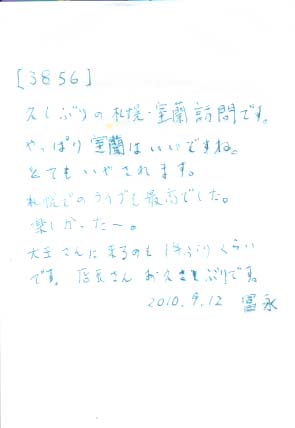 [3856]
久しぶりの札幌・室蘭訪問です。
やっぱり室蘭はいいですね。
とてもいやされます。
札幌でのライブも最高でした。
楽しかった～。
大王さんに来るのも1年ぶりくらい
です。店長さんお久さしぶりです。
2010.9.12 冨永